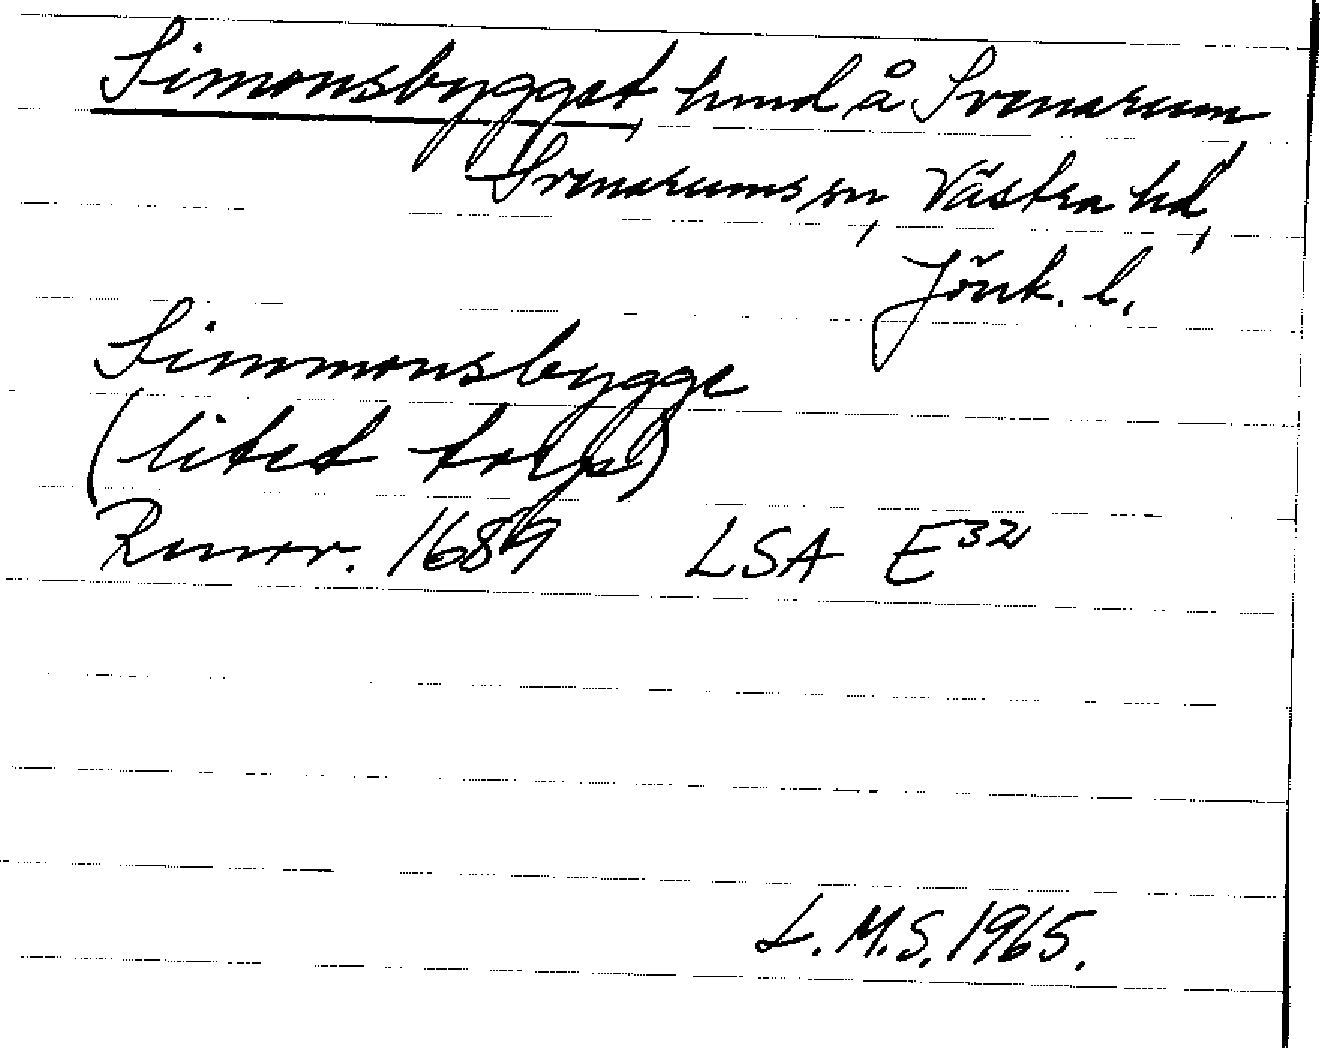 Simonsbygget, hmd å Svenarum,
Svenarums sn, Västra hd,
Jönk. l.
Simmonsbygge
(litet torp)
Renov. 1689 LSA E32
L.M.S. 1965.